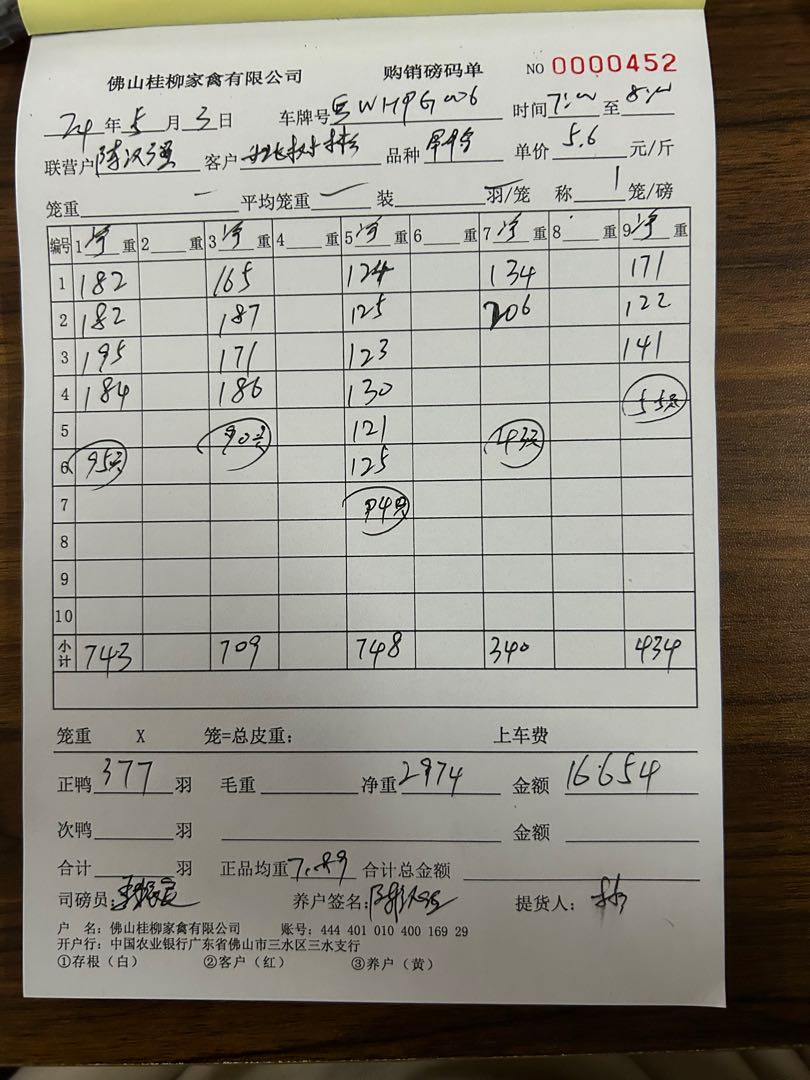 佛山桂柳家禽有限公司 购销磅码单 NO 0000452
24 年 5 月 3 日 车牌号 WHPG006 时间 7:00 至 8:00
联营户 陈汉强 客户 林树彬 品种 单价 5.6 元/斤
笼重 一 平均笼重 一 装 一 羽/笼 称 1 笼/磅
编号 1 净 重 2 重 3 净 重 4 重 5 净 重 6 重 7 净 重 8 重 9 净 重
1 182 165 124 134 171
2 182 187 125 206 122
3 195 171 123 141
4 184 186 130 55只
5 90只 121 43只
6 95只 125
7 94只
8
9
10
小计 743 709 748 340 434
笼重 X 笼=总皮重: 上车费
正鸭 377 羽 毛重 净重 2974 金额 16654
次鸭 羽 金额
合计 羽 正品均重 7.89 合计总金额
司磅员: 养户签名: 提货人:
户 名: 佛山桂柳家禽有限公司 账号: 444 401 010 400 169 29
开户行: 中国农业银行广东省佛山市三水区三水支行
①存根(白) ②客户(红) ③养户(黄)